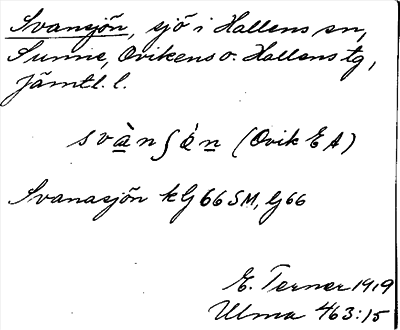 Svansjön, sjö i Hallens sn,
Sunne, Ovikens o. Hallens tg,
Jämtl. l.
svànʃö̀n (Ovik E A)
Svanasjön kG 66 SM, G 66
E. Terner 1919
Ulma 463:15